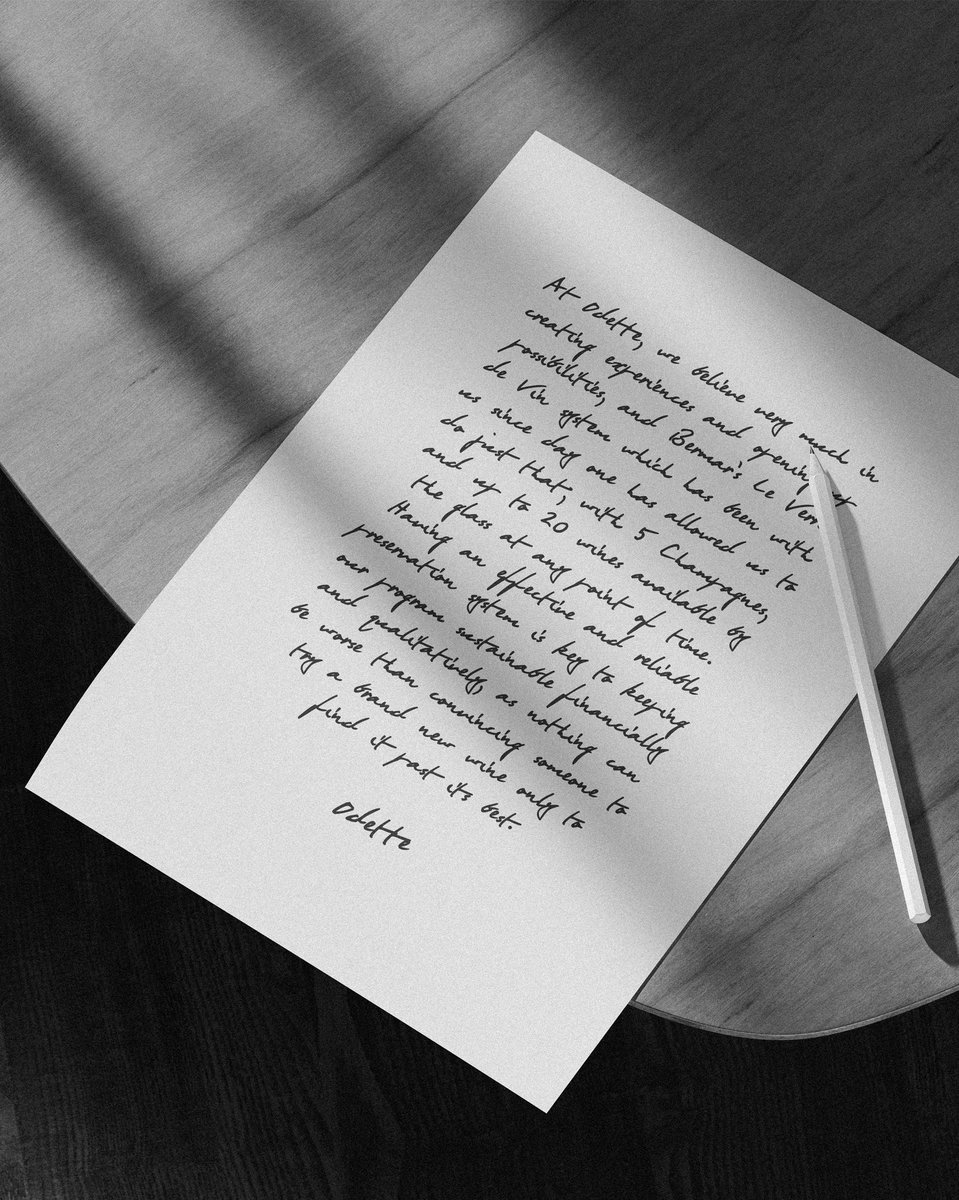 At Odette, we believe very much in
creating experiences and opening up
possibilities, and Bermar's Le Verre
de Vin system which has been with
us since day one has allowed us to
do just that, with 5 Champagnes,
and up to 20 wines available by
the glass at any point of time.
Having an effective and reliable
preservation system is key to keeping
our program sustainable financially
and qualitatively, as nothing can
be worse than convincing someone to
try a brand new wine only to
find it past its best.
Odette